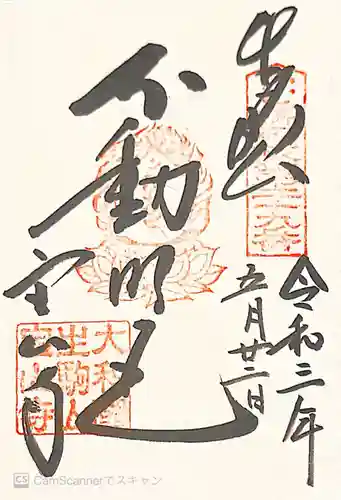 奉拝
令和三年
五月廿二日
不動明王
宝山寺
大和國
生駒山
宝山寺
CS CamScannerでスキャン